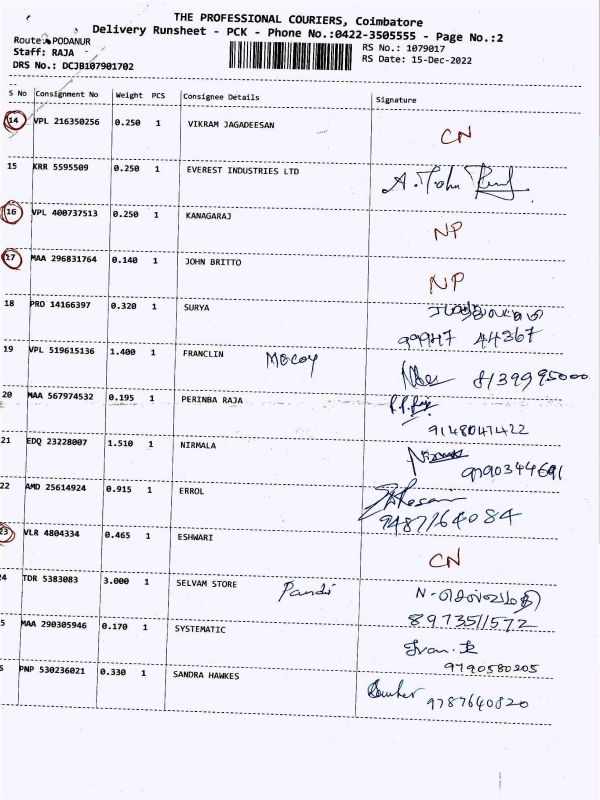 THE PROFESSIONAL COURIERS, Coimbatore
Delivery Runsheet - PCK - Phone No.:0422-3505555 - Page No.:2
Route: PODANUR
RS No.: 1079017
Staff: RAJA
RS Date: 15-Dec-2022
DRS No.: DCJB107901702
S No Consignment No Weight PCS Consignee Details Signature
14 VPL 216350256 0.250 1 VIKRAM JAGADEESAN CN
15 KRR 5595509 0.250 1 EVEREST INDUSTRIES LTD A. John
16 VPL 400737513 0.250 1 KANAGARAJ NP
17 MAA 296831764 0.140 1 JOHN BRITTO NP
18 PRO 14166397 0.320 1 SURYA
99947 44367
19 VPL 519615136 1.400 1 FRANCLIN 8139995000
20 MAA 567974532 0.195 1 PERINBA RAJA
9148041422
21 EDQ 23228007 1.510 1 NIRMALA
9790344691
22 AMD 25614924 0.915 1 ERROL
9487764084
23 VLR 4804334 0.465 1 ESHWARI CN
24 TDR 5383083 3.000 1 SELVAM STORE Pandi
8973511572
5 MAA 290305946 0.170 1 SYSTEMATIC
9790580205
6 PNP 530236021 0.330 1 SANDRA HAWKES
9787640820